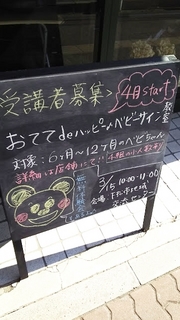 受講者募集> 4月start
おててdeハッピー♪ベビーサイン 教室
対象：6ヶ月〜12ヶ月のベビちゃん
詳細は店舗にて 4組の少人数制
無料体験会
3/15 10:00-11:00
会場
センター